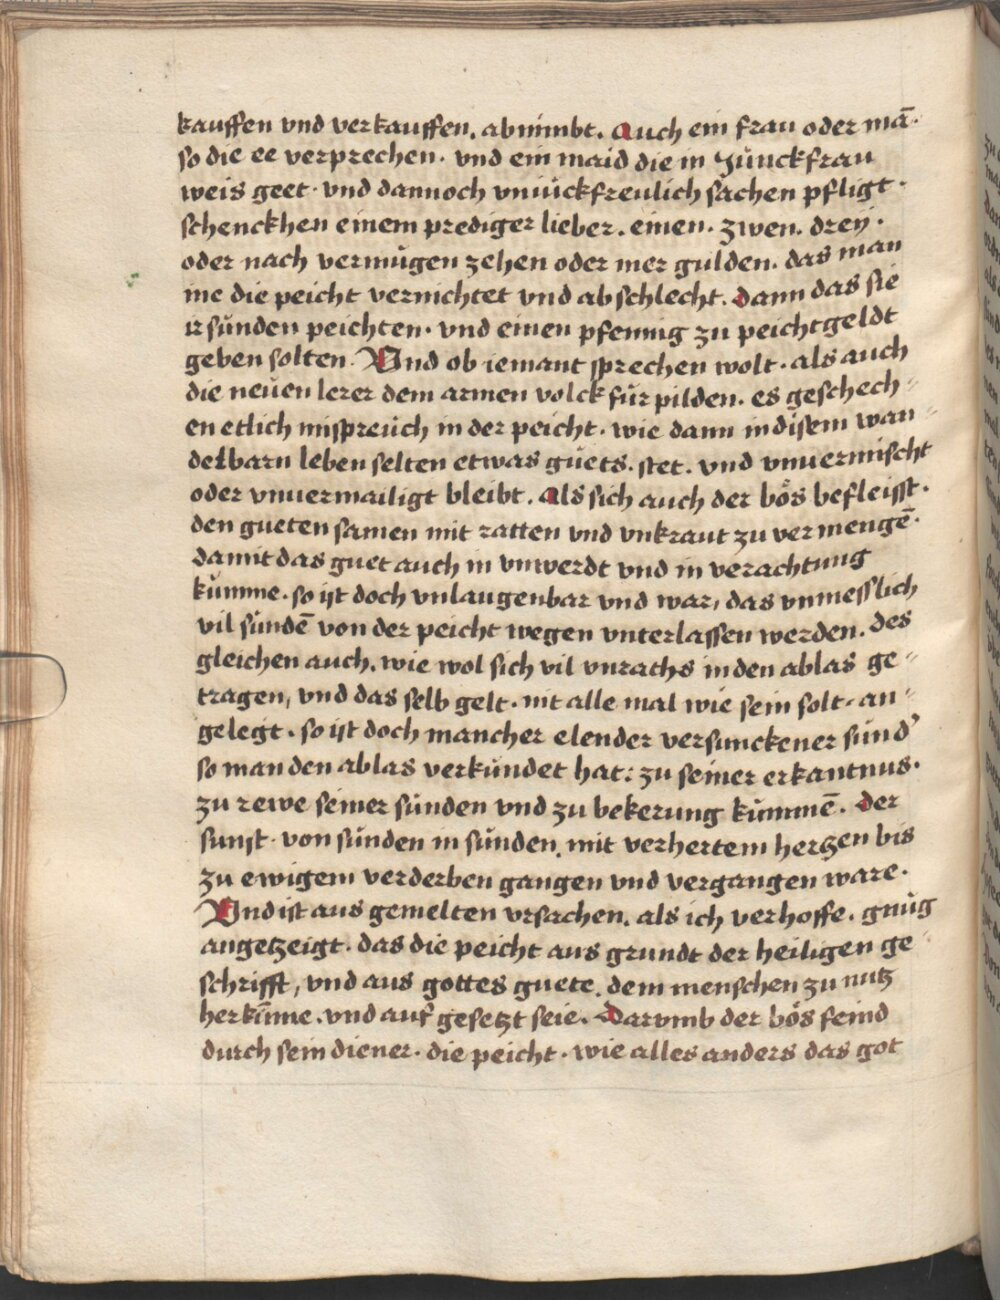 kauffen vnd verkauffen. abnimbt. Auch ein frau oder mā.
so die ee verprechen. vnd ein maid die in Junckfrau
weis geet. vnd dannoch vniunckfreulich sachen pfligt.
schenckhen einem prediger lieber. einen. zwen. drey.
oder nach vermůgen zehen oder mer gulden. das man
ine die peicht vernichtet vnd abschlecht. Dann das sie
ir sůnden peichten. vnd einen pfennig zu peichtgeldt
geben solten. Vnd ob iemant sprechen wolt. als auch
die neůen lerer dem armen volck fůr pilden. es geschech⸗
en etlich mispreůch in der peicht. wie dann in disem wan⸗
delbarn leben selten etwas gůets. stet. vnd vnuermischt
oder vnuermailigt bleibt. Als sich auch der bős befleisst.
den gueten samen mit ratten vnd vnkraut zu vermengē.
damit das guet auch in vnwerdt vnd in verachtung
kůmme. so ist doch vnlaugenbar vnd war, das vnmesslich
vil sůndē von der peicht wegen vnterlassen werden. des
gleichen auch. wie wol sich vil vnraths in den ablas ge⸗
tragen, vnd das selb gelt. nit alle mal wie sein solt. an⸗
gelegt. so ist doch mancher elender versunckener sůnd'
so man den ablas verkůndet hat: zu seiner erkantnus.
zu rewe seiner sůnden vnd zu bekerung kůmmē. Der
sunst. von sůnden in sůnden. mit verhertem hertzen bis
zu ewigem verderben gangen vnd vergangen ware.
Vnd ist aus gemelten vrsachen. als ich verhoffe. gnůg
angetzeigt. das die peicht aus grundt der heiligen ge
schrifft, vnd aus gottes guete. dem menschen zu nutz
herkůme. vnd auf gesetzt seie. Darvmb der bős feind
durch sein diener. die peicht. wie alles anders das got